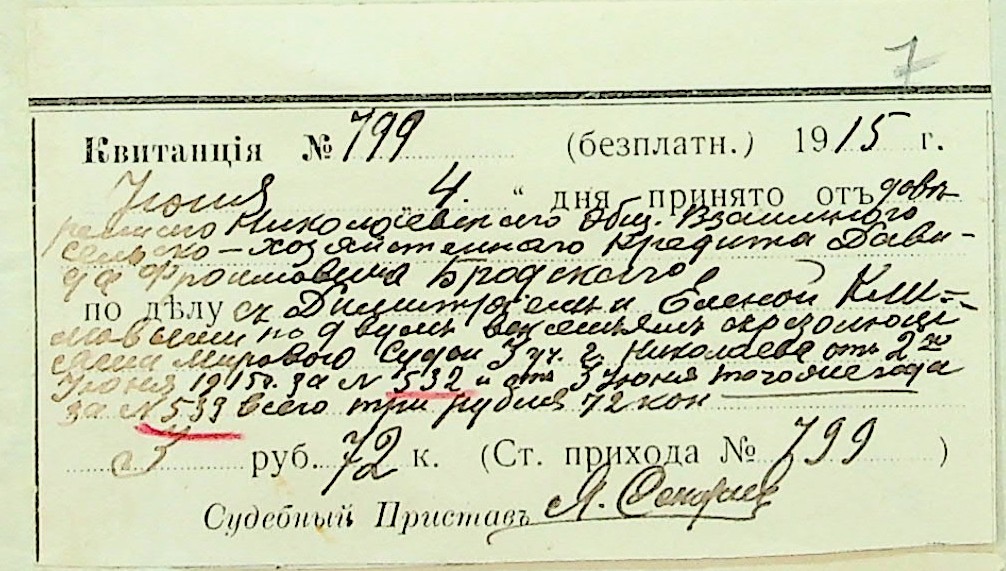 7
Квитанція № 799 (безплатн.) 1915 г.
Іюня 4 " дня принято отъ довѣ-
реннаго Николаевскаго Общ. Взаимнаго
сельско-хозяйственнаго Кредита Дави-
да Фроимовича Бродскаго
по дѣлу съ Димитріемъ и Еленой Кли-
мовыми по двумъ
Мирового Судьи 3 уч. г. Николаева отъ 2го
Іюня 1915г. за № 532 и отъ 3 Іюня того же года
за № 533 всего три рубля 72 коп
3 руб. 72 к. (Ст. прихода № 799 )
Судебный Приставъ